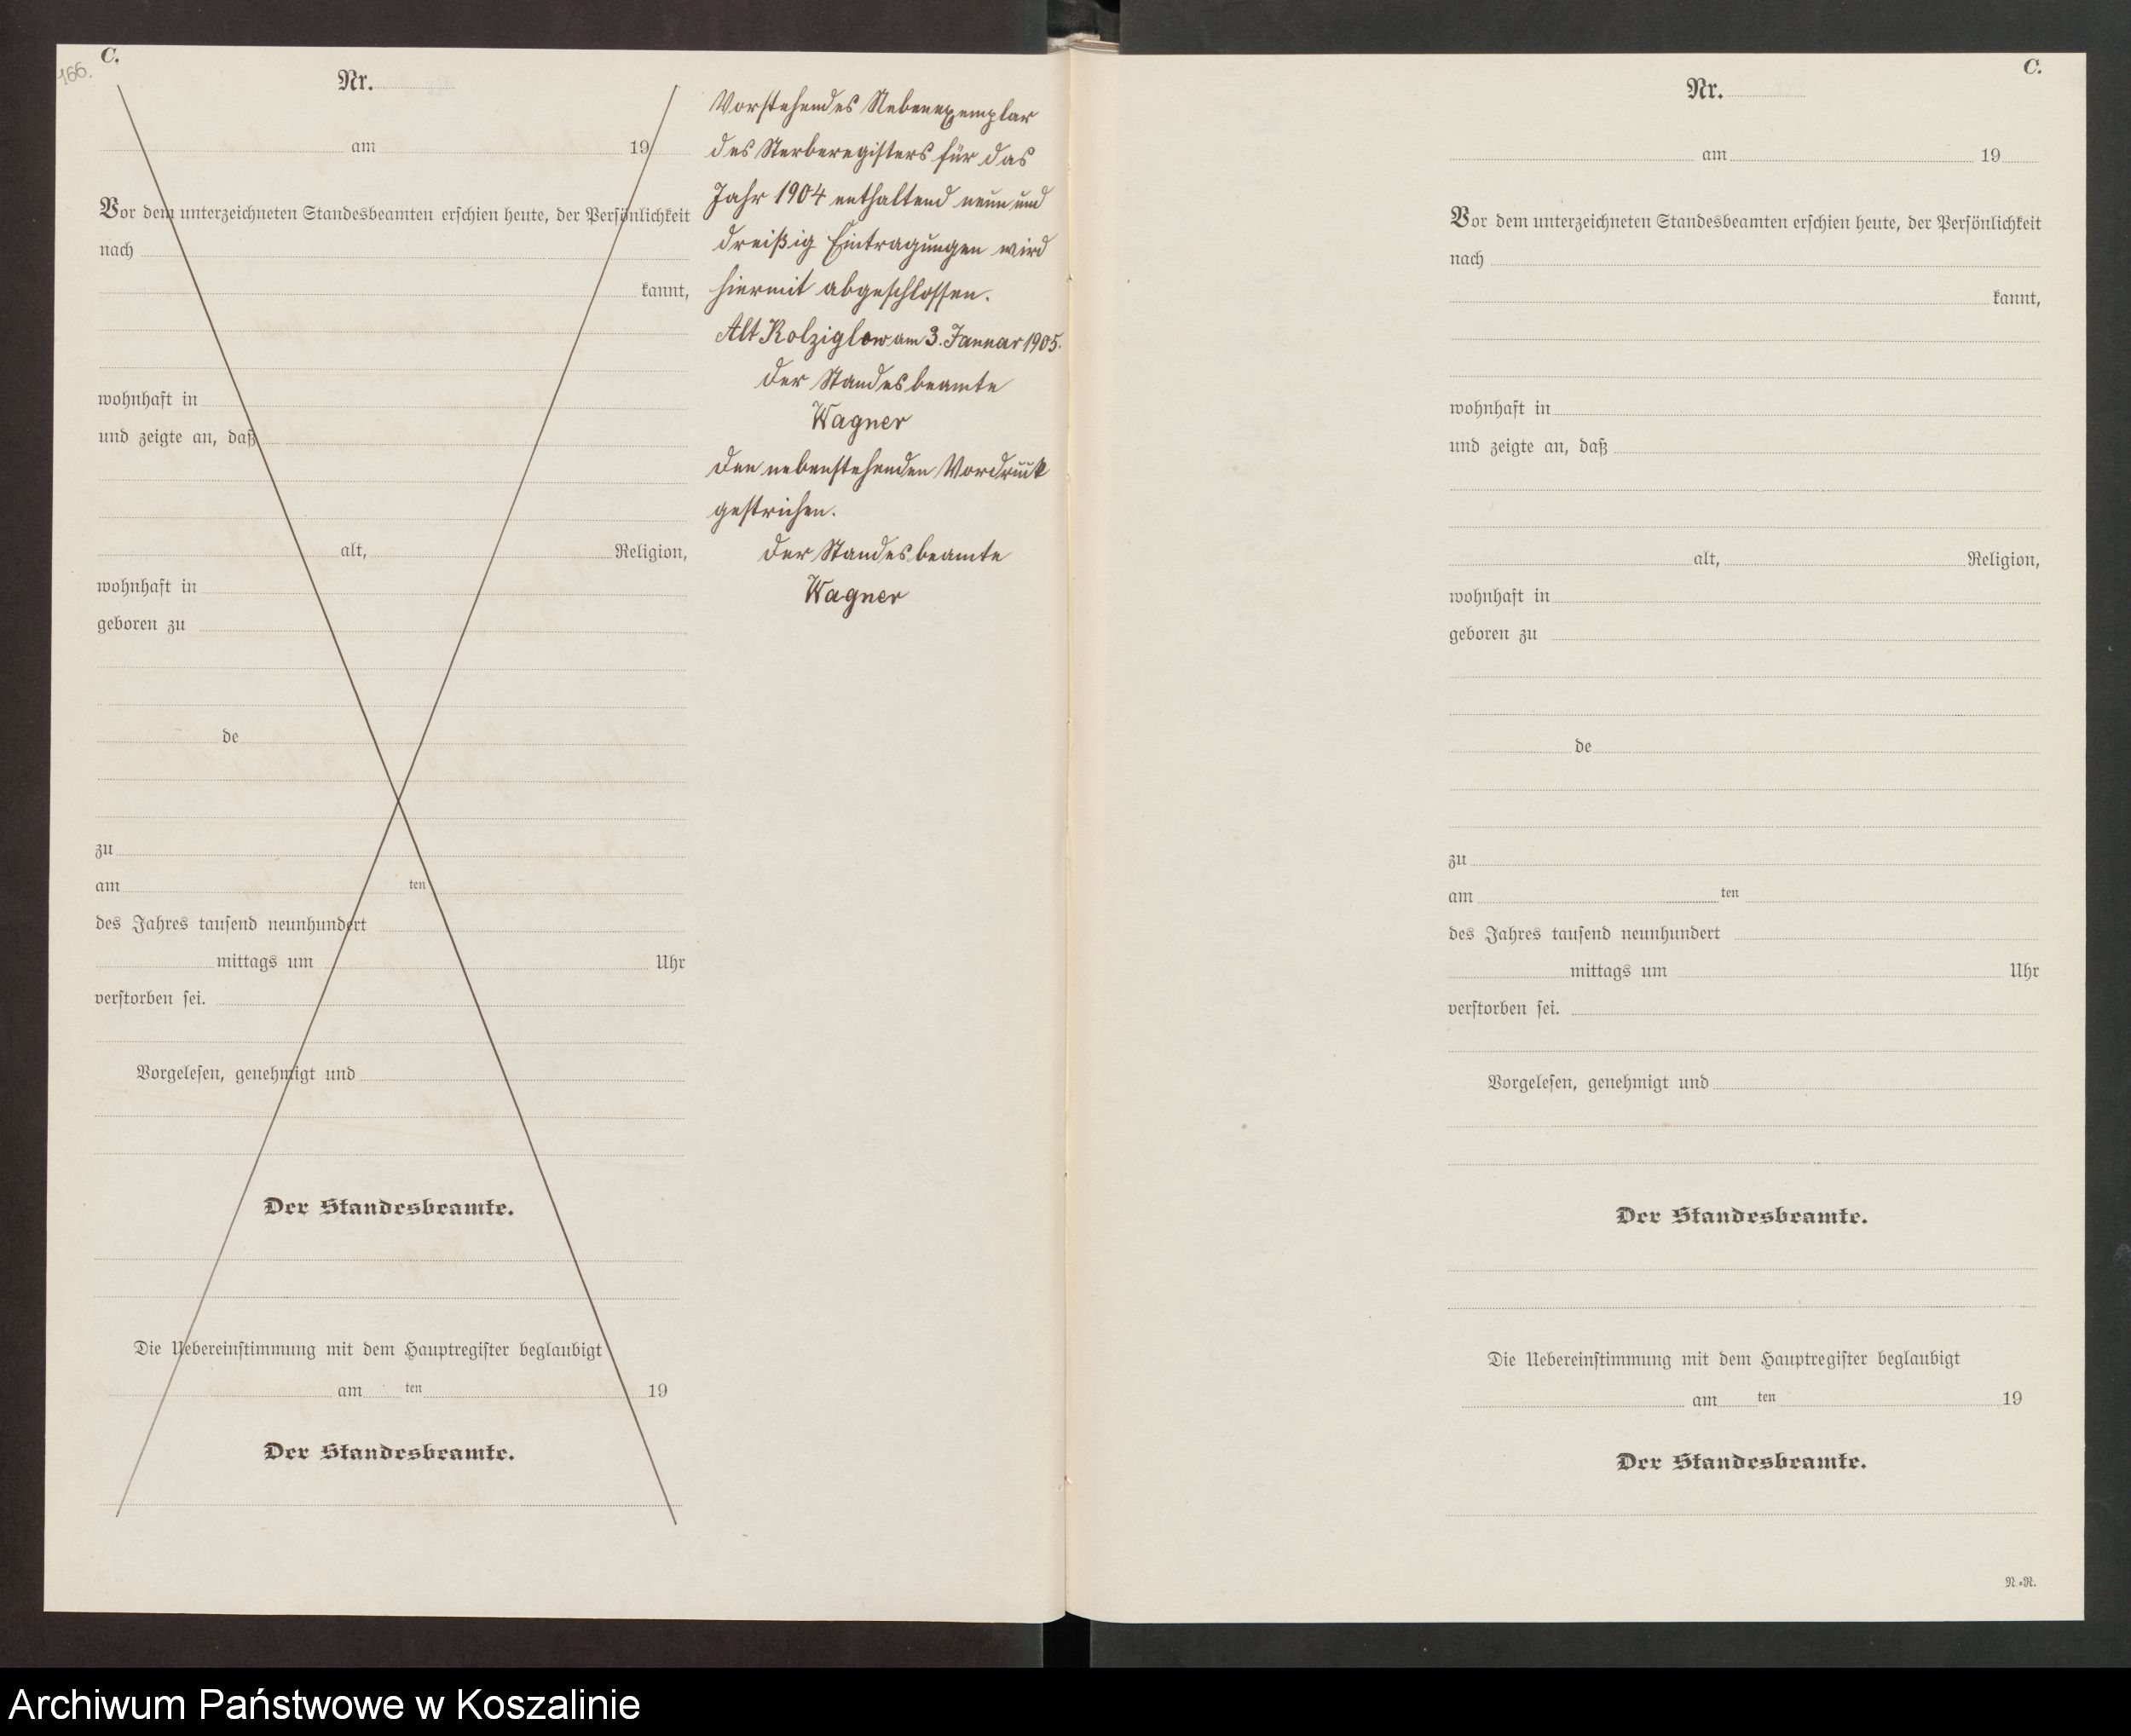 166.
C.
Nr.
am 19
Vor dem unterzeichneten Standesbeamten erschien heute, der Persönlichkeit
nach
kannt,
wohnhaft in
und zeigte an, daß
alt, Religion,
wohnhaft in
geboren zu
de
zu
am ten
des Jahres tausend neunhundert
mittags um Uhr
verstorben sei.
Vorgelesen, genehmigt und
Der Standesbeamte.
Die Uebereinstimmung mit dem Hauptregister beglaubigt
am ten 19
Der Standesbeamte.
Vorstehendes Nebenexemplar
des Sterberegisters für das
Jahr 1904 enthaltend neun und
dreißig Eintragungen wird
hiermit abgeschlossen.
Alt Kolziglow am 3. Januar 1905.
Der Standesbeamte
Wagner
Den nebenstehenden Vordruck
gestrichen.
Der Standesbeamte
Wagner
C.
Nr.
am 19
Vor dem unterzeichneten Standesbeamten erschien heute, der Persönlichkeit
nach
kannt,
wohnhaft in
und zeigte an, daß
alt, Religion,
wohnhaft in
geboren zu
de
zu
am ten
des Jahres tausend neunhundert
mittags um Uhr
verstorben sei.
Vorgelesen, genehmigt und
Der Standesbeamte.
Die Uebereinstimmung mit dem Hauptregister beglaubigt
am ten 19
Der Standesbeamte.
N.=N.
Archiwum Państwowe w Koszalinie